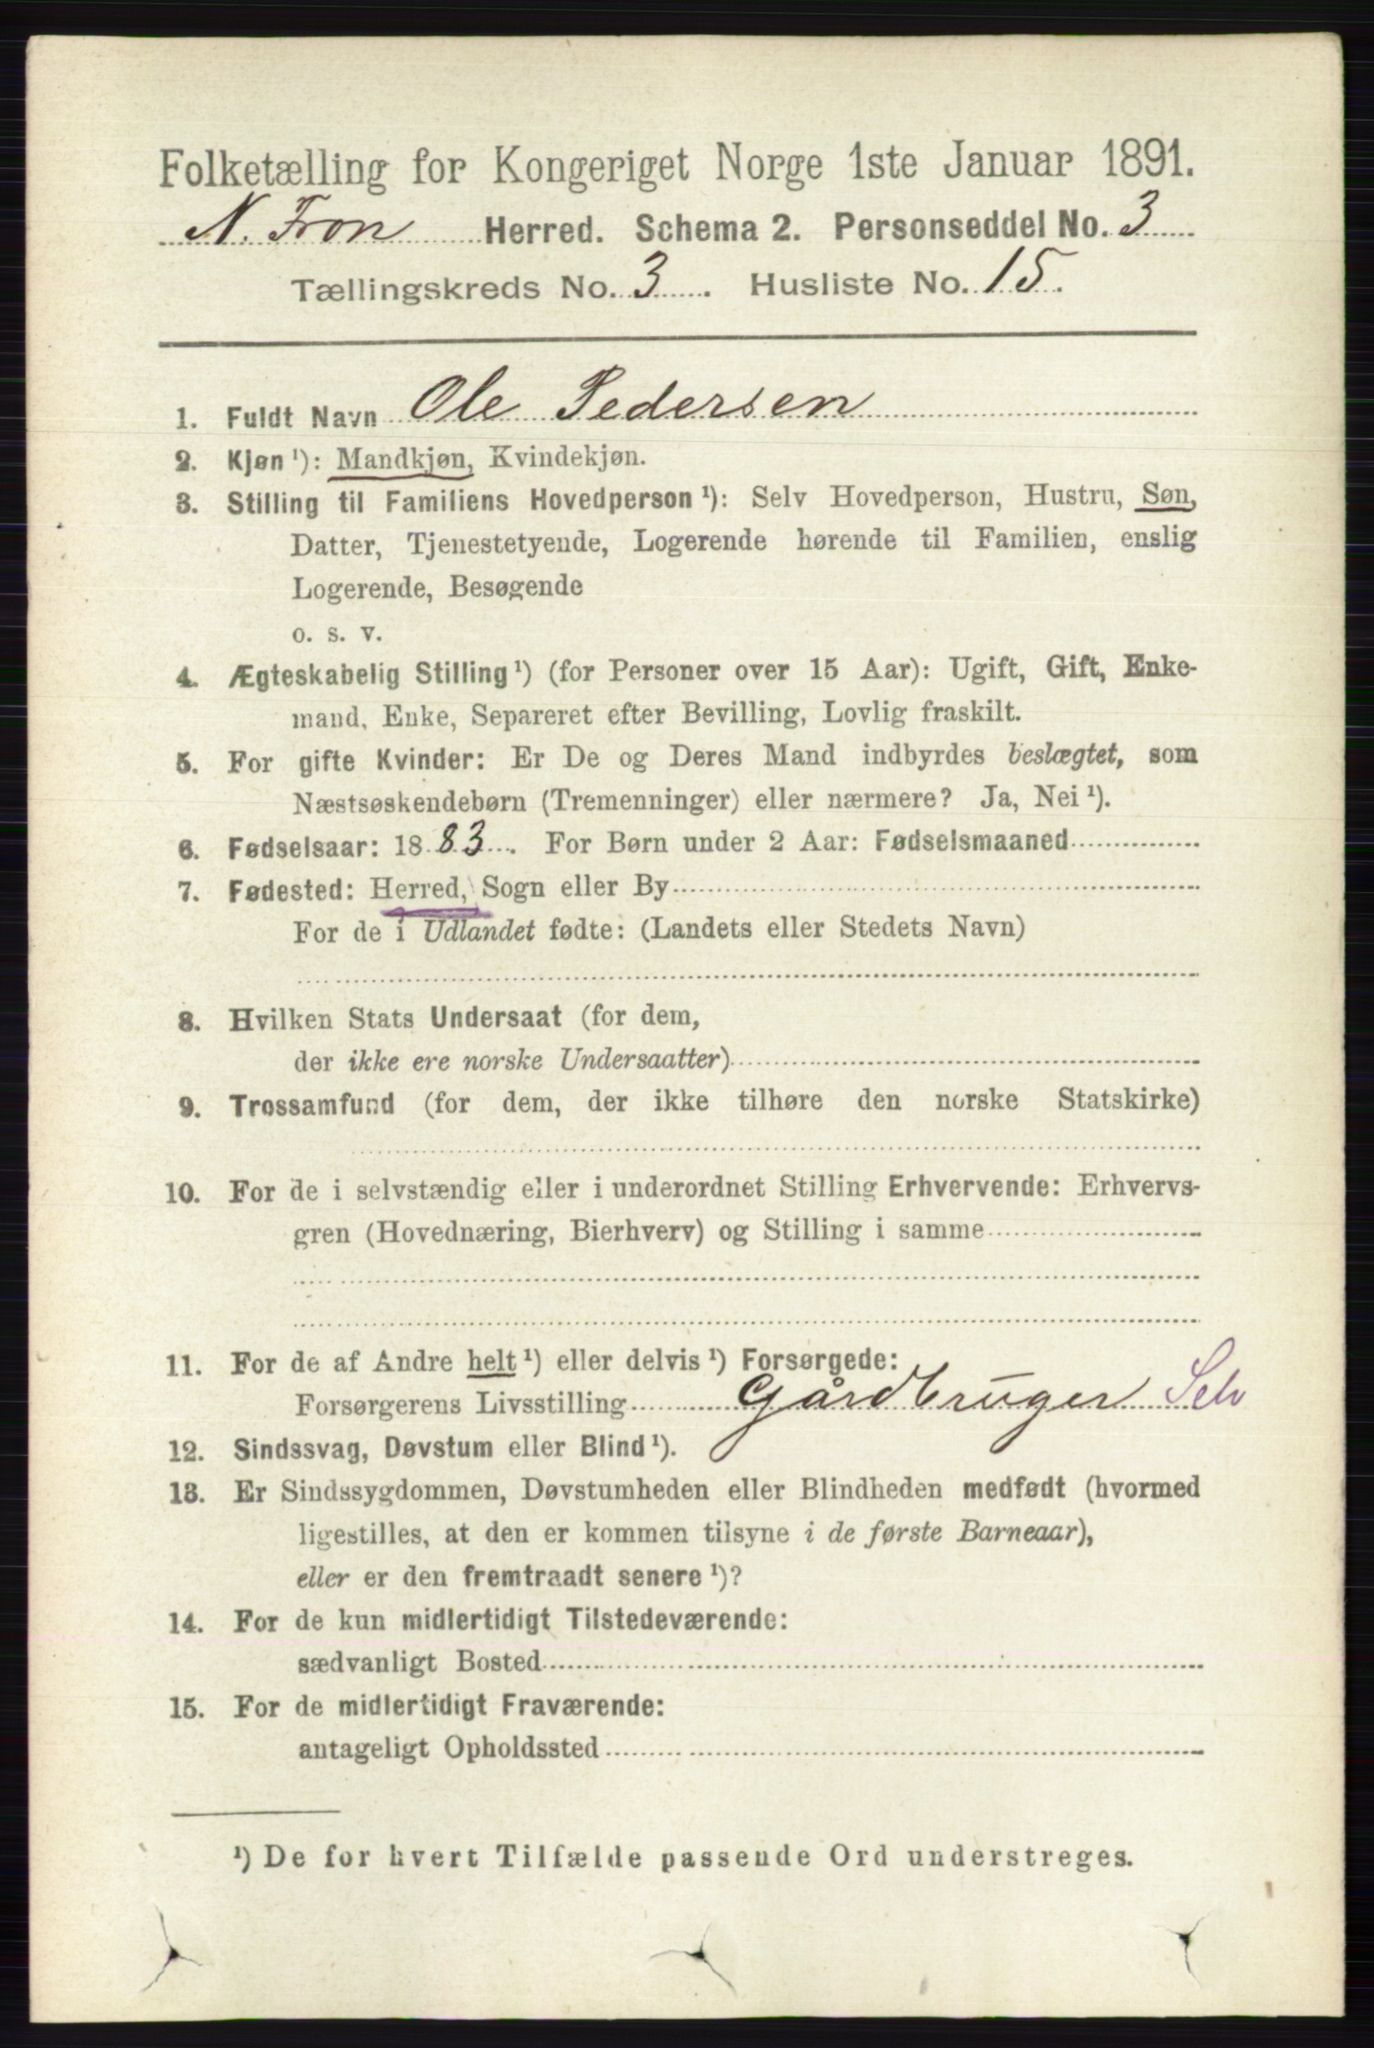 Folketælling for Kongeriget Norge 1ste Januar 1891.
N. Fron Herred. Schema 2. Personseddel No. 3
Tællingskreds No. 3. Husliste No. 15.
1. Fuldt Navn Ole Pedersen
2. Kjøn¹): Mandkjøn, Kvindekjøn.
3. Stilling til Familiens Hovedperson¹): Selv Hovedperson, Hustru, Søn,
Datter, Tjenestetyende, Logerende hørende til Familien, enslig
Logerende, Besøgende
o. s. v.
4. Ægteskabelig Stilling¹) (for Personer over 15 Aar): Ugift, Gift, Enke-
mand, Enke, Separeret efter Bevilling, Lovlig fraskilt.
5. For gifte Kvinder: Er De og Deres Mand indbyrdes beslægtet, som
Næstsøskendebørn (Tremenninger) eller nærmere? Ja, Nei¹).
6. Fødselsaar: 1883. For Børn under 2 Aar: Fødselsmaaned
7. Fødested: Herred, Sogn eller By
For de i Udlandet fødte: (Landets eller Stedets Navn)
8. Hvilken Stats Undersaat (for dem,
der ikke ere norske Undersaatter)
9. Trossamfund (for dem, der ikke tilhøre den norske Statskirke)
10. For de i selvstændig eller i underordnet Stilling Erhvervende: Erhvervs-
gren (Hovednæring, Bierhverv) og Stilling i samme
11. For de af Andre helt¹) eller delvis¹) Forsørgede:
Forsørgerens Livsstilling Gårdbruger Selv
12. Sindssvag, Døvstum eller Blind¹).
13. Er Sindssygdommen, Døvstumheden eller Blindheden medfødt (hvormed
ligestilles, at den er kommen tilsyne i de første Barneaar),
eller er den fremtraadt senere¹)?
14. For de kun midlertidigt Tilstedeværende:
sædvanligt Bosted
15. For de midlertidigt Fraværende:
antageligt Opholdssted
¹) De for hvert Tilfælde passende Ord understreges.